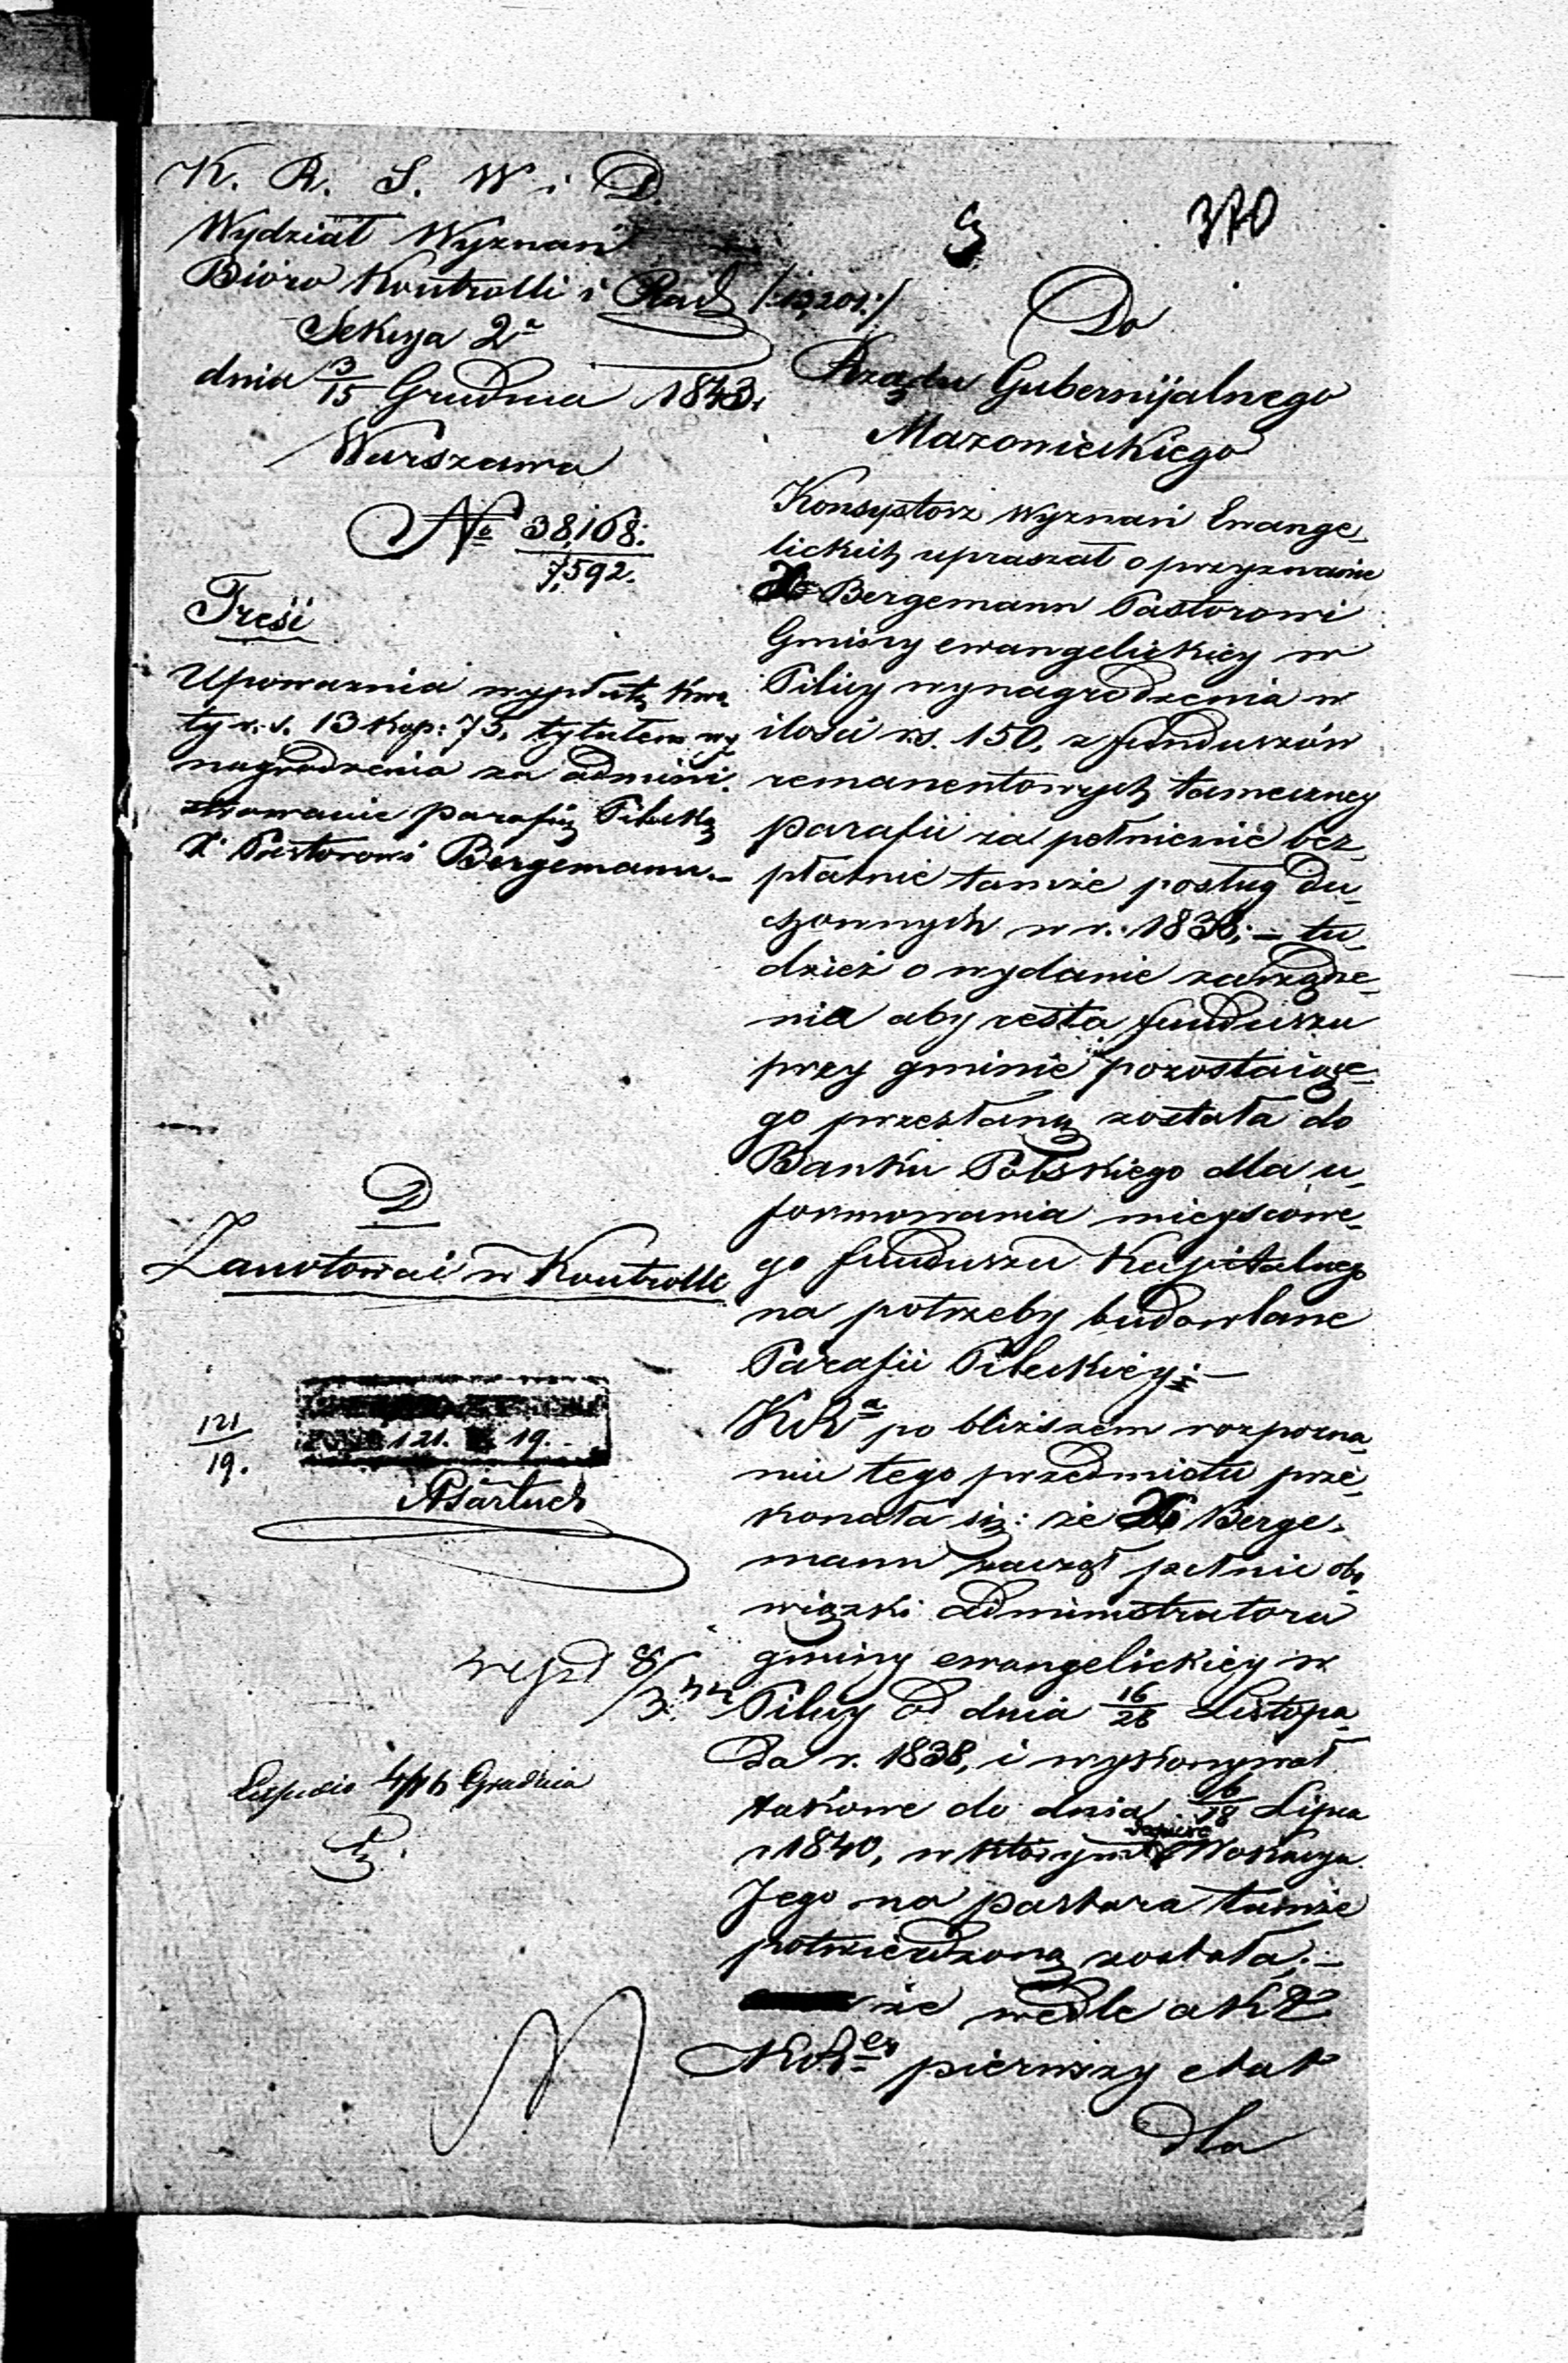 370
K. R. S. W i D
Wydział Wyznań
Bióro Kontrolli i Rach /:13,201:/
Sekcya 2a
dnia 3/15 Grudnia 1843.
Warszawa
No 38,168:
7,592.
Treść
Upoważnia wypłatę kwo
ty r. s. 13 kop: 75, tytułem wy
nagrodzenia za admini,
strowanie parafią Pilicką
X. Pastorowi Bergemann.–
D
Zanotować w Kontrolli
121/19.
121. 19.
wejrz
Expedio 4/16 Grudnia
Do
Rządu Gubernijalnego
Mazowieckiego
Konsystorz Wyznań Ewange,
lickich upraszał o przyznanie
X Bergemann Pastorowi
Gminy ewangelickiey w
Pilicy wynagrodzenia w
ilości rs. 150, z funduszów
remanentowych tameczney
parafii za pełnienie bez,
płatnie tamże posług Du,
chownych w r. 1838; – tu,
dzież o wydanie zarządze,
nia aby reszta funduszu
przy gminie pozostaiące,
go przesłaną została do
Banku Polskiego dla u,
formowania mieyscowe,
go funduszu Kapitalnego
na potrzeby budowlane
Parafii Pileckiéy: –
KRa po bliższem rozpozna,
niu tego przedmiotu prze,
konała się: że X Berge,
mann zaczął pełnić obo,
wiązki administratora
gminy ewangelickiey w
Pilicy od dnia 16/28 Listopa
da r. 1838, i wykonywał
takowe do dnia 6/18 Lipca
r 1840, w którym dopiero Wokacya
Jego na pastora tamże
potwierdzoną została; –
że wedle akt
KRey pierwszy etat
dla